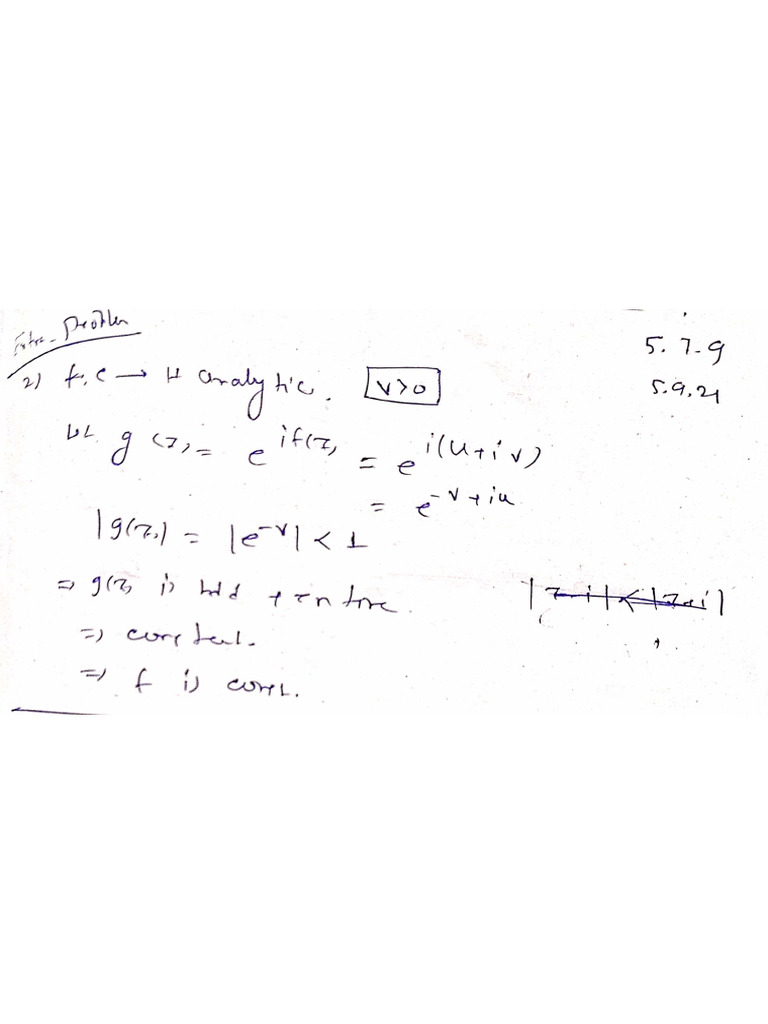 Extra Problem
5.7.9
2) f: C → H analytic. V>0
5.9.21
let g(z) = e^{if(z)} = e^{i(u+iv)}
= e^{-v+iu}
|g(z)| = |e^{-v}| < 1
⇒ g(z) is bdd + entire.
|z-i|<|z+i|
⇒ constant.
⇒ f is const.